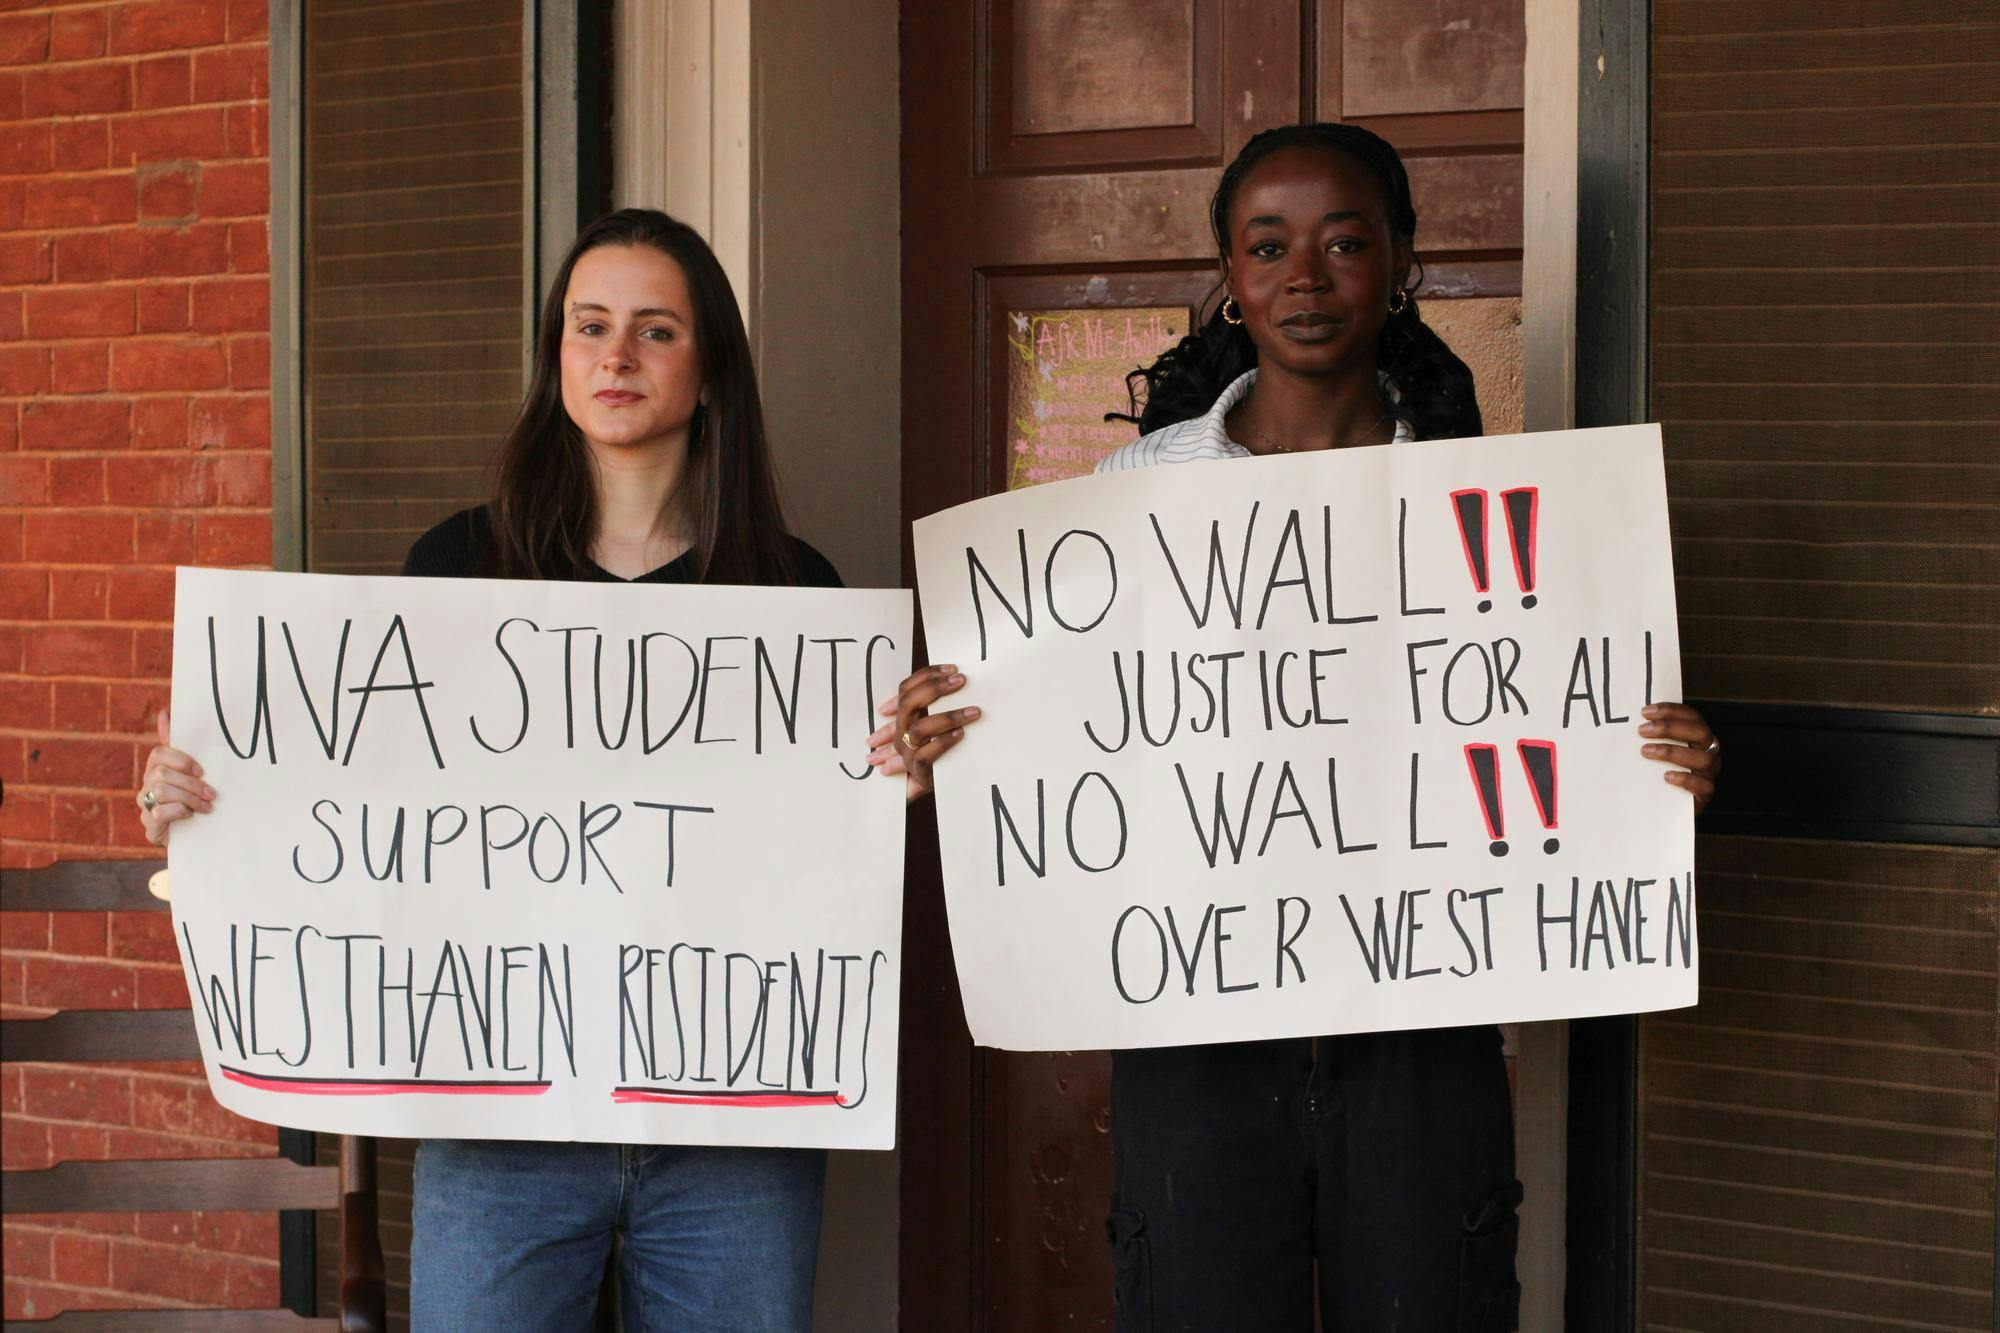 UVA STUDENTS
SUPPORT
WESTHAVEN RESIDENTS
NO WALL!!
JUSTICE FOR ALL
NO WALL!!
OVER WEST HAVEN
ASK ME